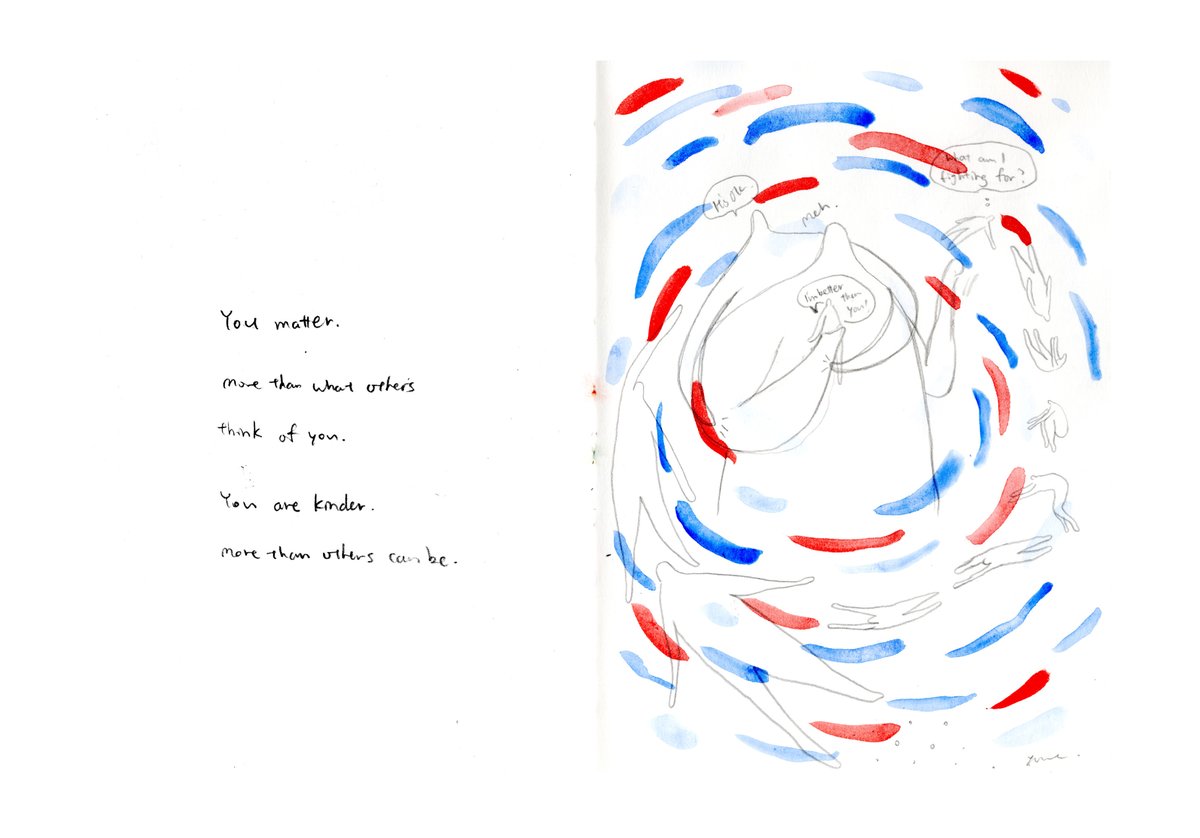 You matter.
more than what other's
think of you.
You are kinder.
more than others can be.
What am I
fighting for?
It's ok.
meh.
I'm better
than
you?